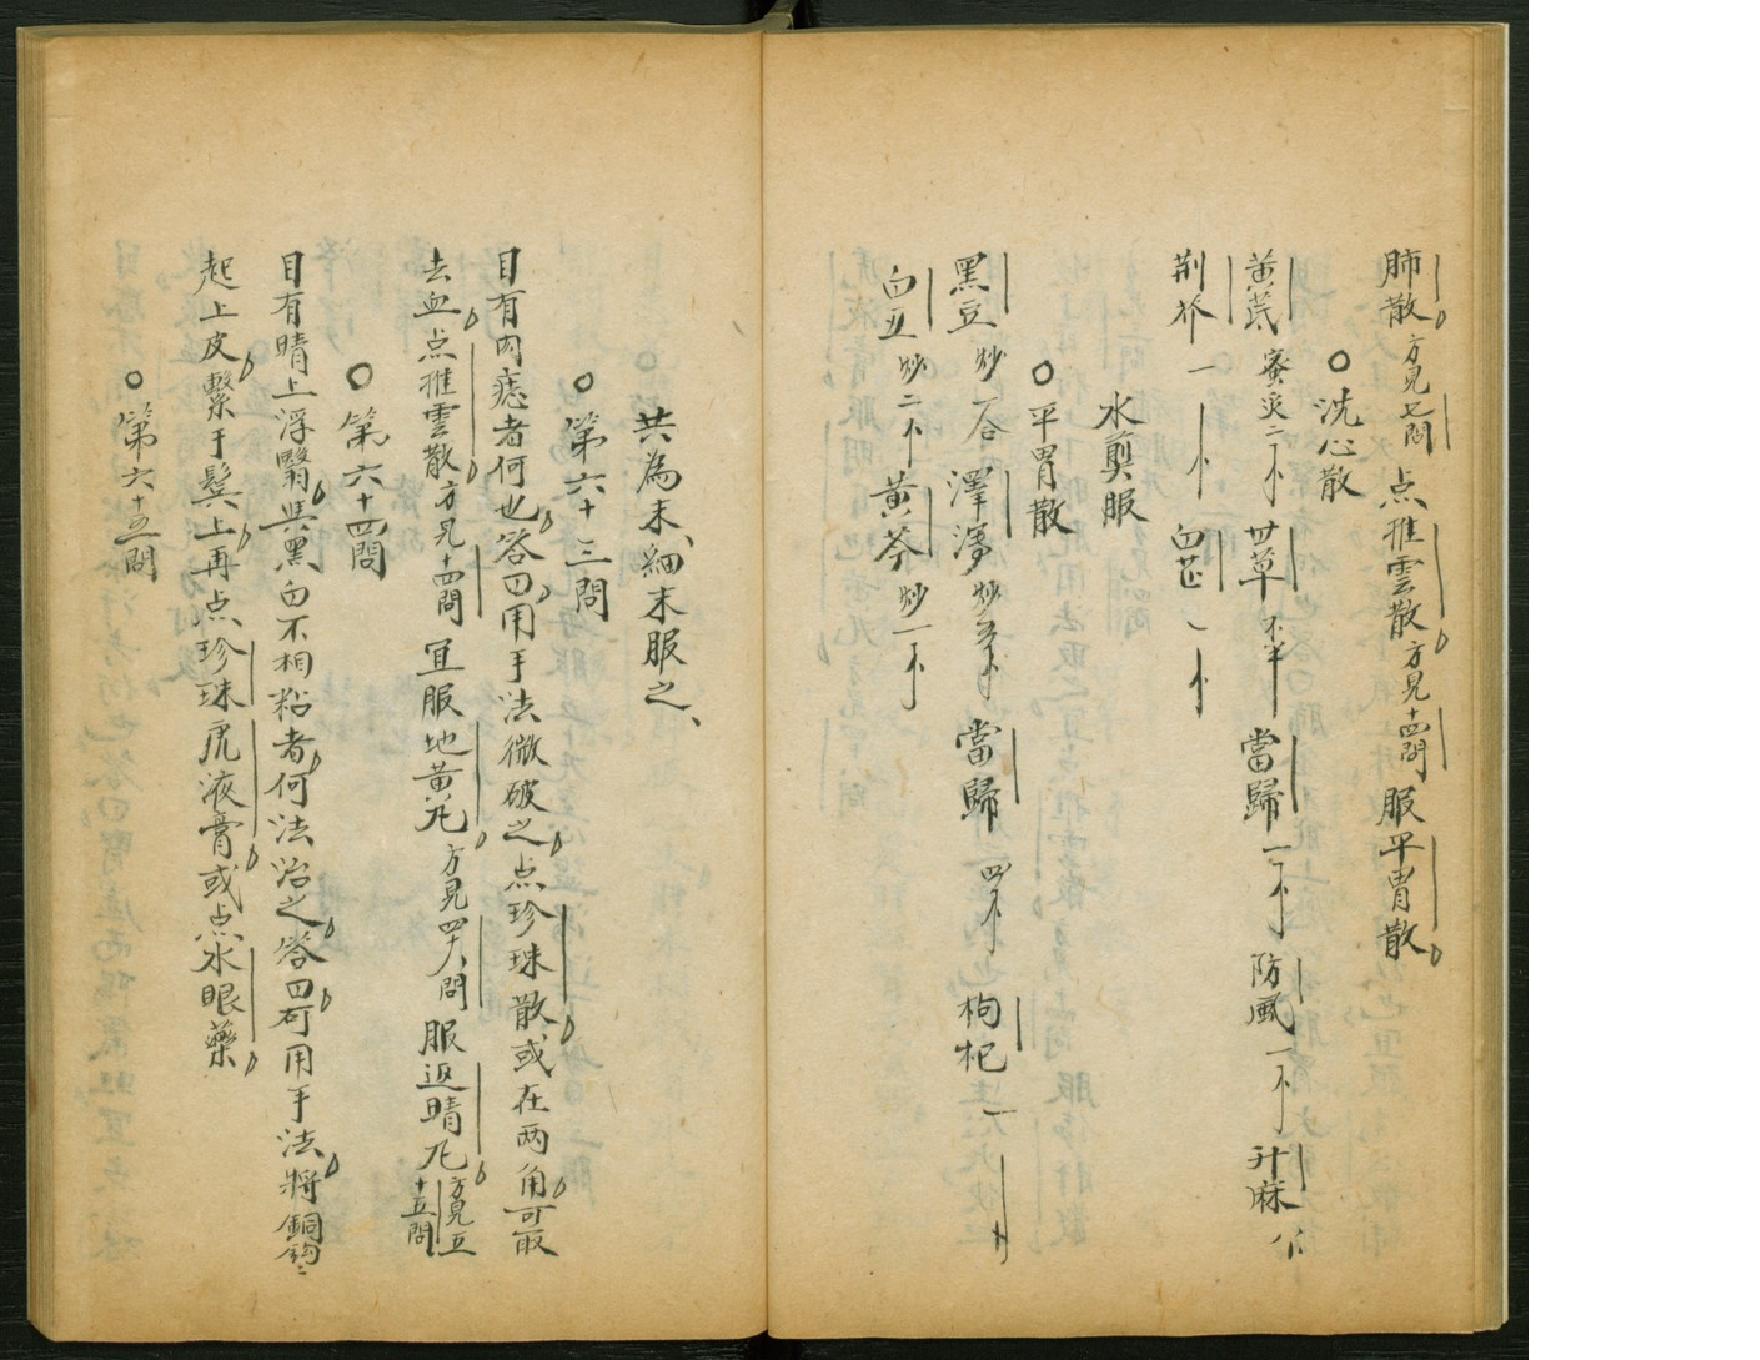 肺散方見七問点推雲散方見十四問服平胃散
○洗心散
黄芪蜜炙二 甘草 當歸一 防風一 升麻
荆芥一 白芷
水煎服
○平胃散
黑豆炒一合 澤瀉炒 當歸四 枸杞一
白豆炒二 黄芩炒一
共為末、細末服之、
○第六十三問
目有肉痣者何也答曰用手法微破之点珍珠散或在两角可取
去血点推雲散方見十四問宜服地黄丸方見四十八問服返睛丸方見五十五問
○第六十四問
目有睛上浮翳与黑白不相粘者何法治之答曰可用手法将銅鈎
起上皮繫于鬓上再点珍珠虎液膏或点水眼藥
○第六十五問